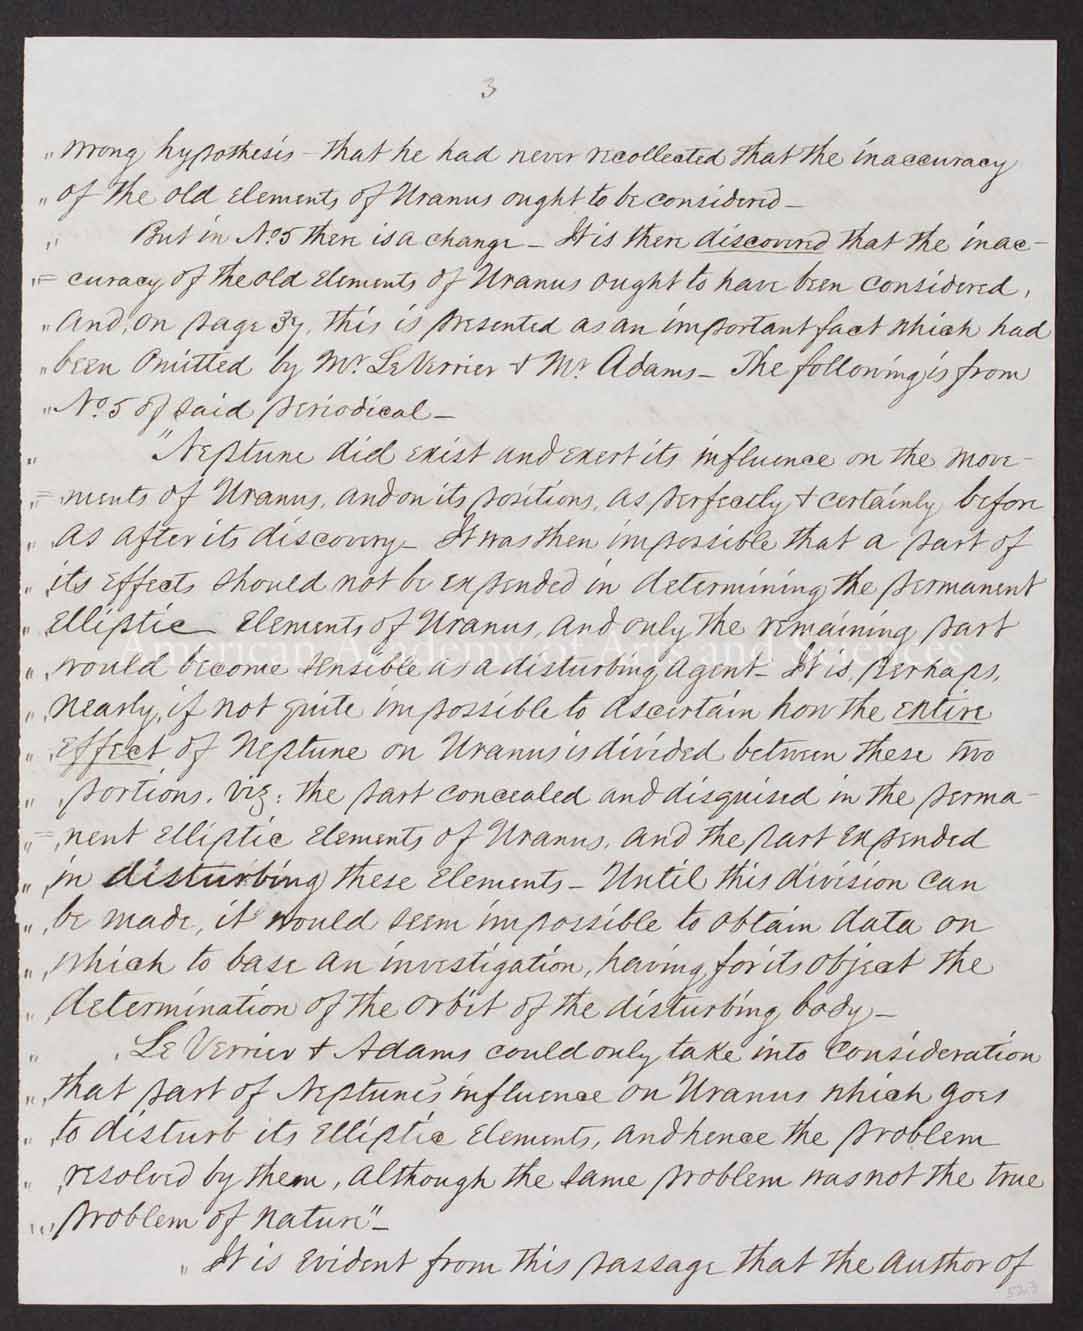 3
" wrong hypothesis - that he had never recollected that the inaccuracy
" of the old Elements of Uranus ought to be considered -
" But in No. 5 there is a change - It is there discovered that the inac-
"= curacy of the old Elements of Uranus ought to have been considered,
" and, on page 37, this is presented as an important fact which had
" been Omitted by Mr. LeVerrier & Mr. Adams - The following is from
" No. 5 of said periodical -
" "Neptune did exist and exert its influence on the move-
"= ments of Uranus, and on its positions, as perfectly & certainly before
" as after its discovery - It was then impossible that a part of
" its effects should not be expended in determining the permanent
" Elliptic Elements of Uranus, and only the remaining part
American Academy of Arts and Sciences
" would become sensible as a disturbing agent - It is, perhaps,
" nearly, if not quite impossible to ascertain how the entire
" effect of Neptune on Uranus is divided between these two
" portions, viz: the part concealed and disguised in the perma-
"= nent Elliptic Elements of Uranus, and the part Expended
" in disturbing these Elements - Until this division can
" be made, it would seem impossible to obtain data on
" which to base an investigation, having for its object the
" determination of the orbit of the disturbing body -
" Le Verrier & Adams could only take into consideration
" that part of Neptune's influence on Uranus which goes
" to disturb its Elliptic Elements, and hence the problem
" resolved by them, although the same problem was not the true
" problem of nature" -
" It is Evident from this passage that the author of